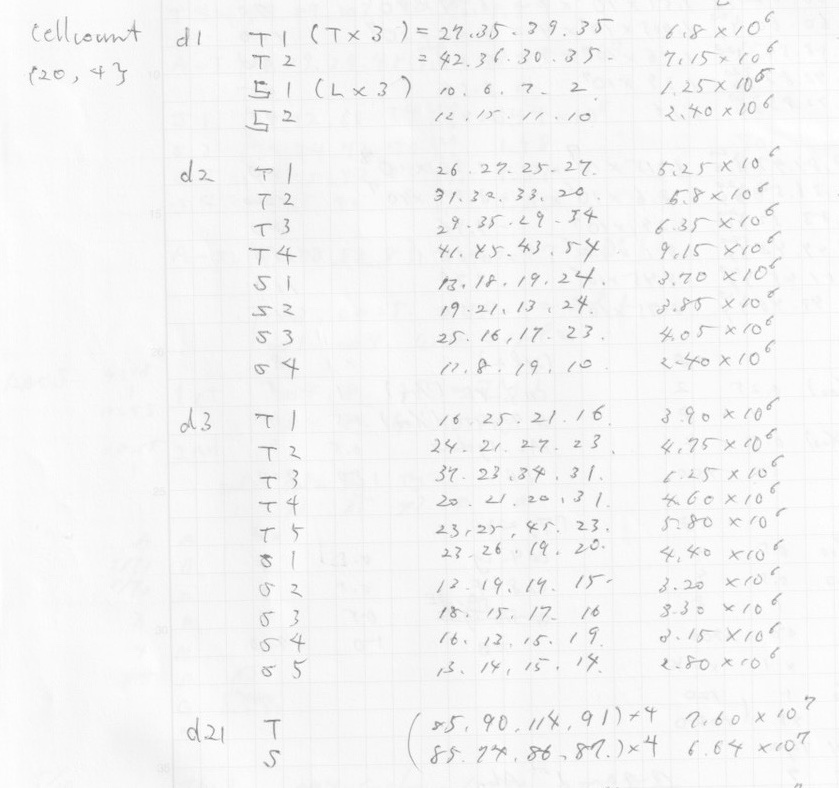 Cellcount d1 T1 (T×3) = 27. 35. 39. 35 6.8×10⁶
{20, 4} T2 = 42. 36. 30. 35. 7.15×10⁶
S1 (L×3) 10. 6. 7. 2 1.25×10⁶
S2 12. 15. 11. 10 2.40×10⁶
d2 T1 26. 27. 25. 27. 5.25×10⁶
T2 31. 32. 33. 20 5.8×10⁶
T3 29. 35. 29. 34 6.35×10⁶
T4 41. 45. 43. 54. 9.15×10⁶
S1 13. 18. 19. 24. 3.70×10⁶
S2 19. 21. 13. 24. 3.85×10⁶
S3 25. 16, 17. 23. 4.05×10⁶
S4 11. 8. 19. 10 2.40×10⁶
d3 T1 16. 25. 21. 16 3.90×10⁶
T2 24. 21. 27. 23. 4.75×10⁶
T3 37. 23. 34. 31. 6.25×10⁶
T4 20. 21. 20. 31 4.60×10⁶
T5 23, 25, 45. 23. 5.80×10⁶
S1 23. 26. 19. 20. 4.40×10⁶
S2 12. 19. 19. 15. 3.20×10⁶
S3 18. 15. 17. 16 3.30×10⁶
S4 16. 13. 15. 19. 3.15×10⁶
S5 13. 14, 15. 14. 2.80×10⁶
d21 T (85, 90, 114, 91)×4 7.60×10⁷
S (85. 74. 86, 87.)×4 6.64×10⁷